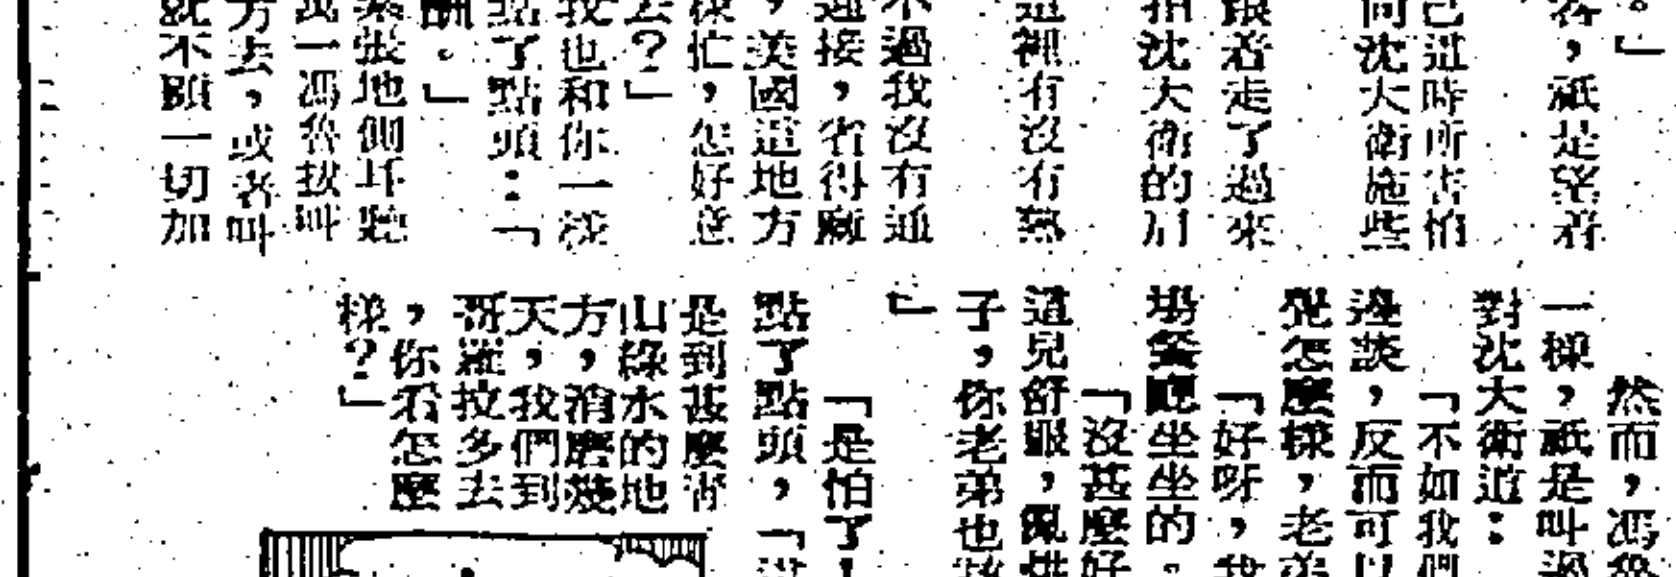 。」
客，祇是望着
己這時所害怕
向沈大衛施些
跟着走了過來
拍沈大衛的肩
這裡有沒有熟
不過我沒有通
通接，省得麻
，美國這地方
忙，怎好意
去？」
我也和你一樣
點了點頭：「
酬。」
緊張地側耳聽
萬一馮魯拔叫
方去，或者叫
就不顧一切加
然而，馮魯
一樣，祇是叫過
對沈大衛道：
「不如我們
邊談，反而可以
覺怎麼樣，老弟
「好呀，我
場餐廳坐坐的。
「沒甚麼好
這兒舒服，
子，你老弟也該
」
「是怕了！
點了點頭，「
是到甚麼青
山綠水的地
方，消磨幾
天，我們到
哥羅拉多去
，你看怎麼
樣？」